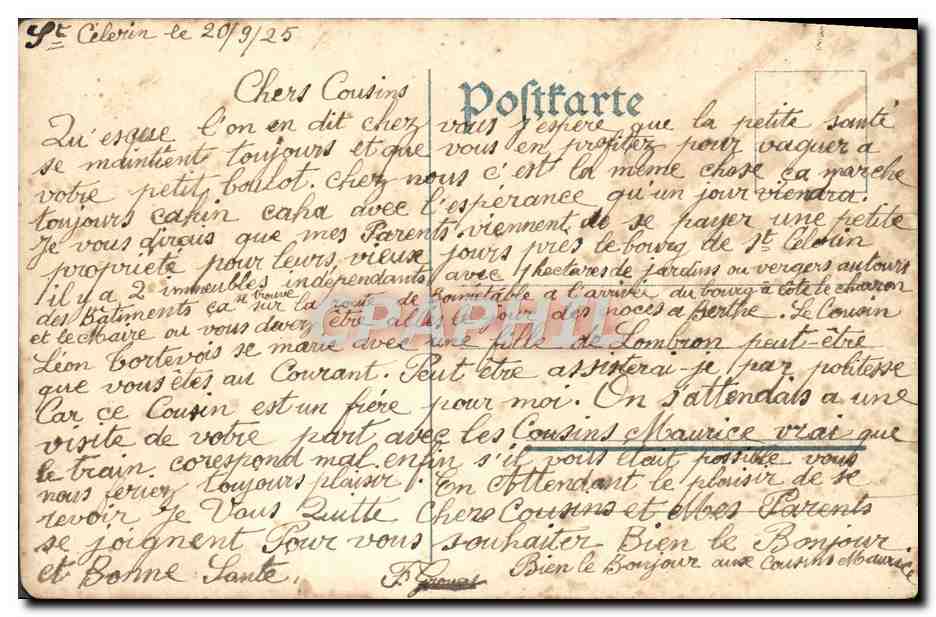 St Célerin le 20/9/25
Postkarte
Chers Cousins
Qu'esque l'on en dit chez vous j'espère que la petite santé
se maintient toujours et que vous en profitez pour vaquer a
votre petit boulot. chez nous c'est la même chose ça marche
toujours cahin caha avec l'espérance qu'un jour viendra.
Je vous dirais que mes Parents viennent de se payer une petite
propriété pour leurs vieux jours près le bourg de St Célerin
il y a 2 immeubles indépendants avec 1 hectares de jardins ou vergers autours
des Bâtiments ça se trouve sur la route de Bonnétable a l'arrivée du bourg a côté le charon
et le Maire ou vous devez être allés le jour des noces a Berthe. Le Cousin
Léon Tortevois se marie avec une fille de Lombron peut-être
que vous êtes au Courant. Peut être assisterai-je par politesse
Car ce Cousin est un frére pour moi. On s'attendais a une
visite de votre part avec les Cousins Maurice vrai que
le train correspond mal enfin s'il vous était possible vous
nous feriez toujours plaisir. En Attendant le plaisir de se
revoir Je Vous Quitte Chers Cousins et Mes Parents
se joignent Pour vous souhaiter Bien le Bonjour
et Bonne Santé.
F
Bien le Bonjour aux Cousins Maurice
CPAPHIL